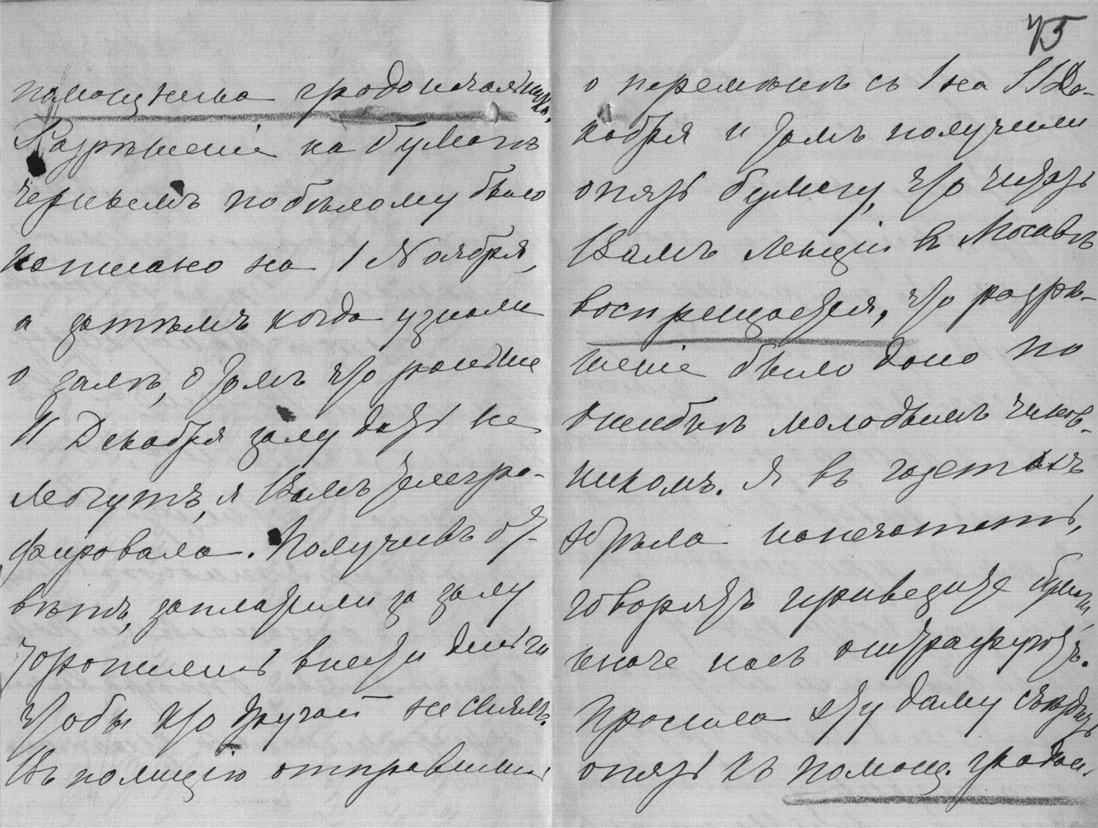 помощника градоначальника.
Разрѣшеніе на бумагѣ
чернымъ по бѣлому было
написано на 1 Ноября,
а затѣмъ когда узнали
о залѣ, о томъ что раньше
11 Декабря залу дать не
могутъ, я Вамъ телегра-
фировала. Получивъ от-
вѣтъ, заплатили за залу
торопились внести деньги
чтобы кто другой не снялъ.
Въ полицію отправили
75
о перемѣнѣ съ 1 на 11 Де-
кабря и тамъ получили
опять бумагу, что читать
Вамъ лекціи въ Москвѣ
воспрещается, что разрѣ-
шеніе было дано по
ошибкѣ молодымъ чинов-
никомъ. Я въ газетахъ
напечатать,
говорятъ привезите
иначе насъ оштрафуютъ.
Просила эту даму съѣздить
опять къ помощ. градон.